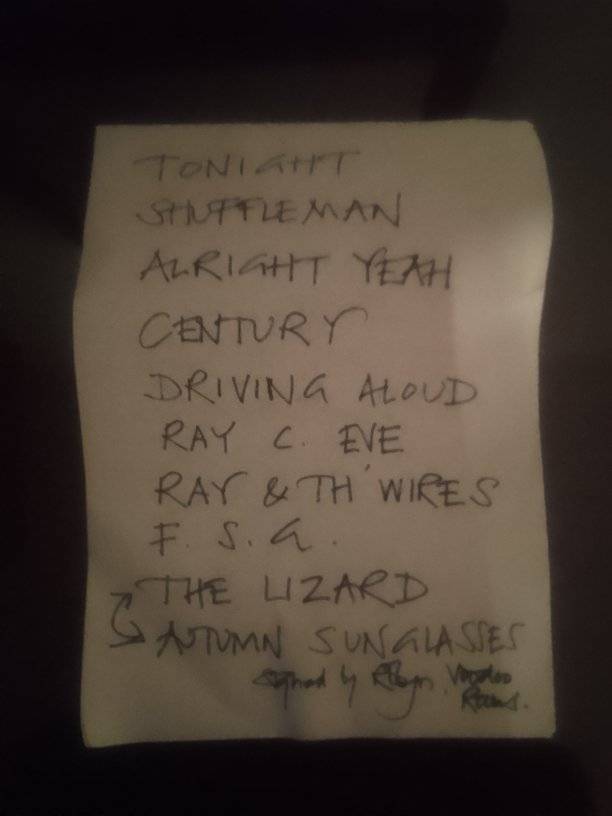 TONIGHT
SHUFFLEMAN
ALRIGHT YEAH
CENTURY
DRIVING ALOUD
RAY C. EVE
RAY & TH' WIRES
F. S. G.
THE LIZARD
AUTUMN SUNGLASSES
signed by Robyn. Voodoo
Rooms.